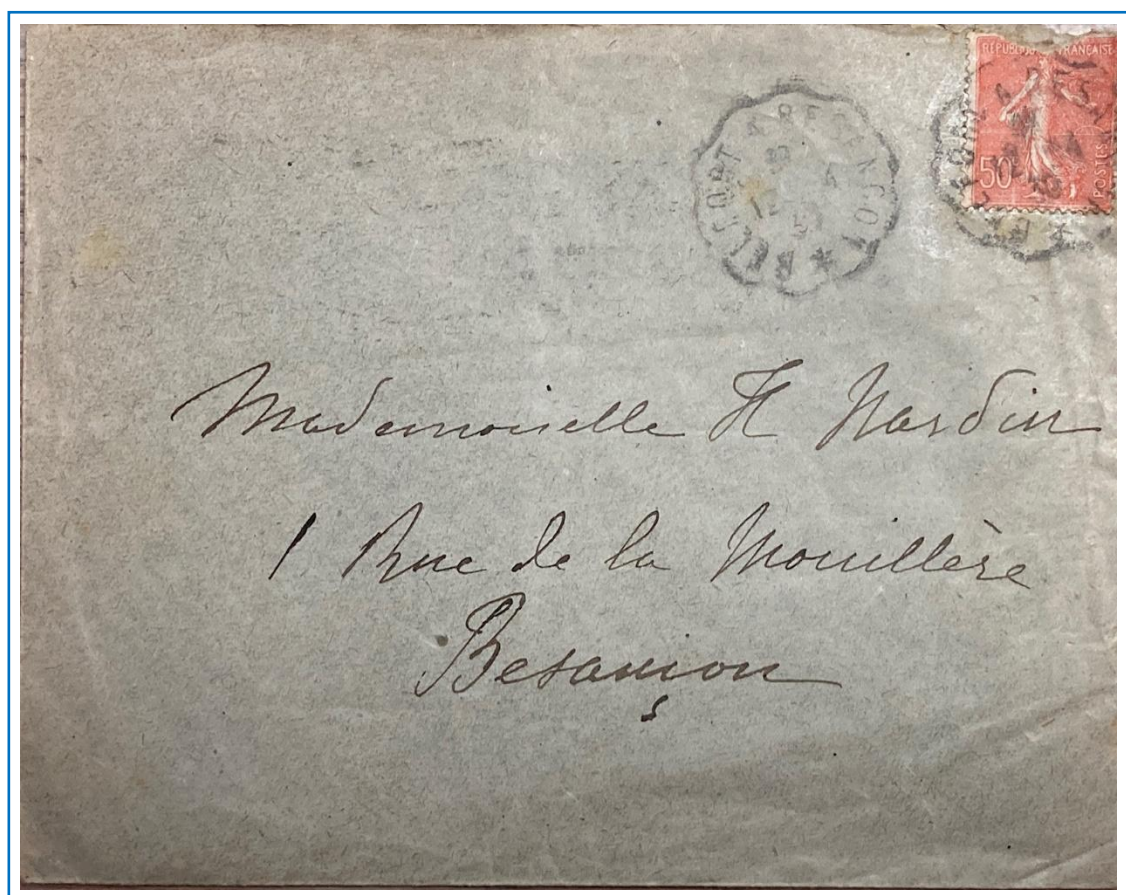 RÉPUBLIQUE FRANÇAISE
50
POSTES
BELFORT A BESANCON
12
Mademoiselle H Nardin
1 Rue de la Mouillère
Besançon